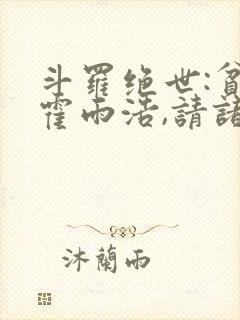 斗羅绝世:貧
霍雨浩,請諸
沐蘭雨